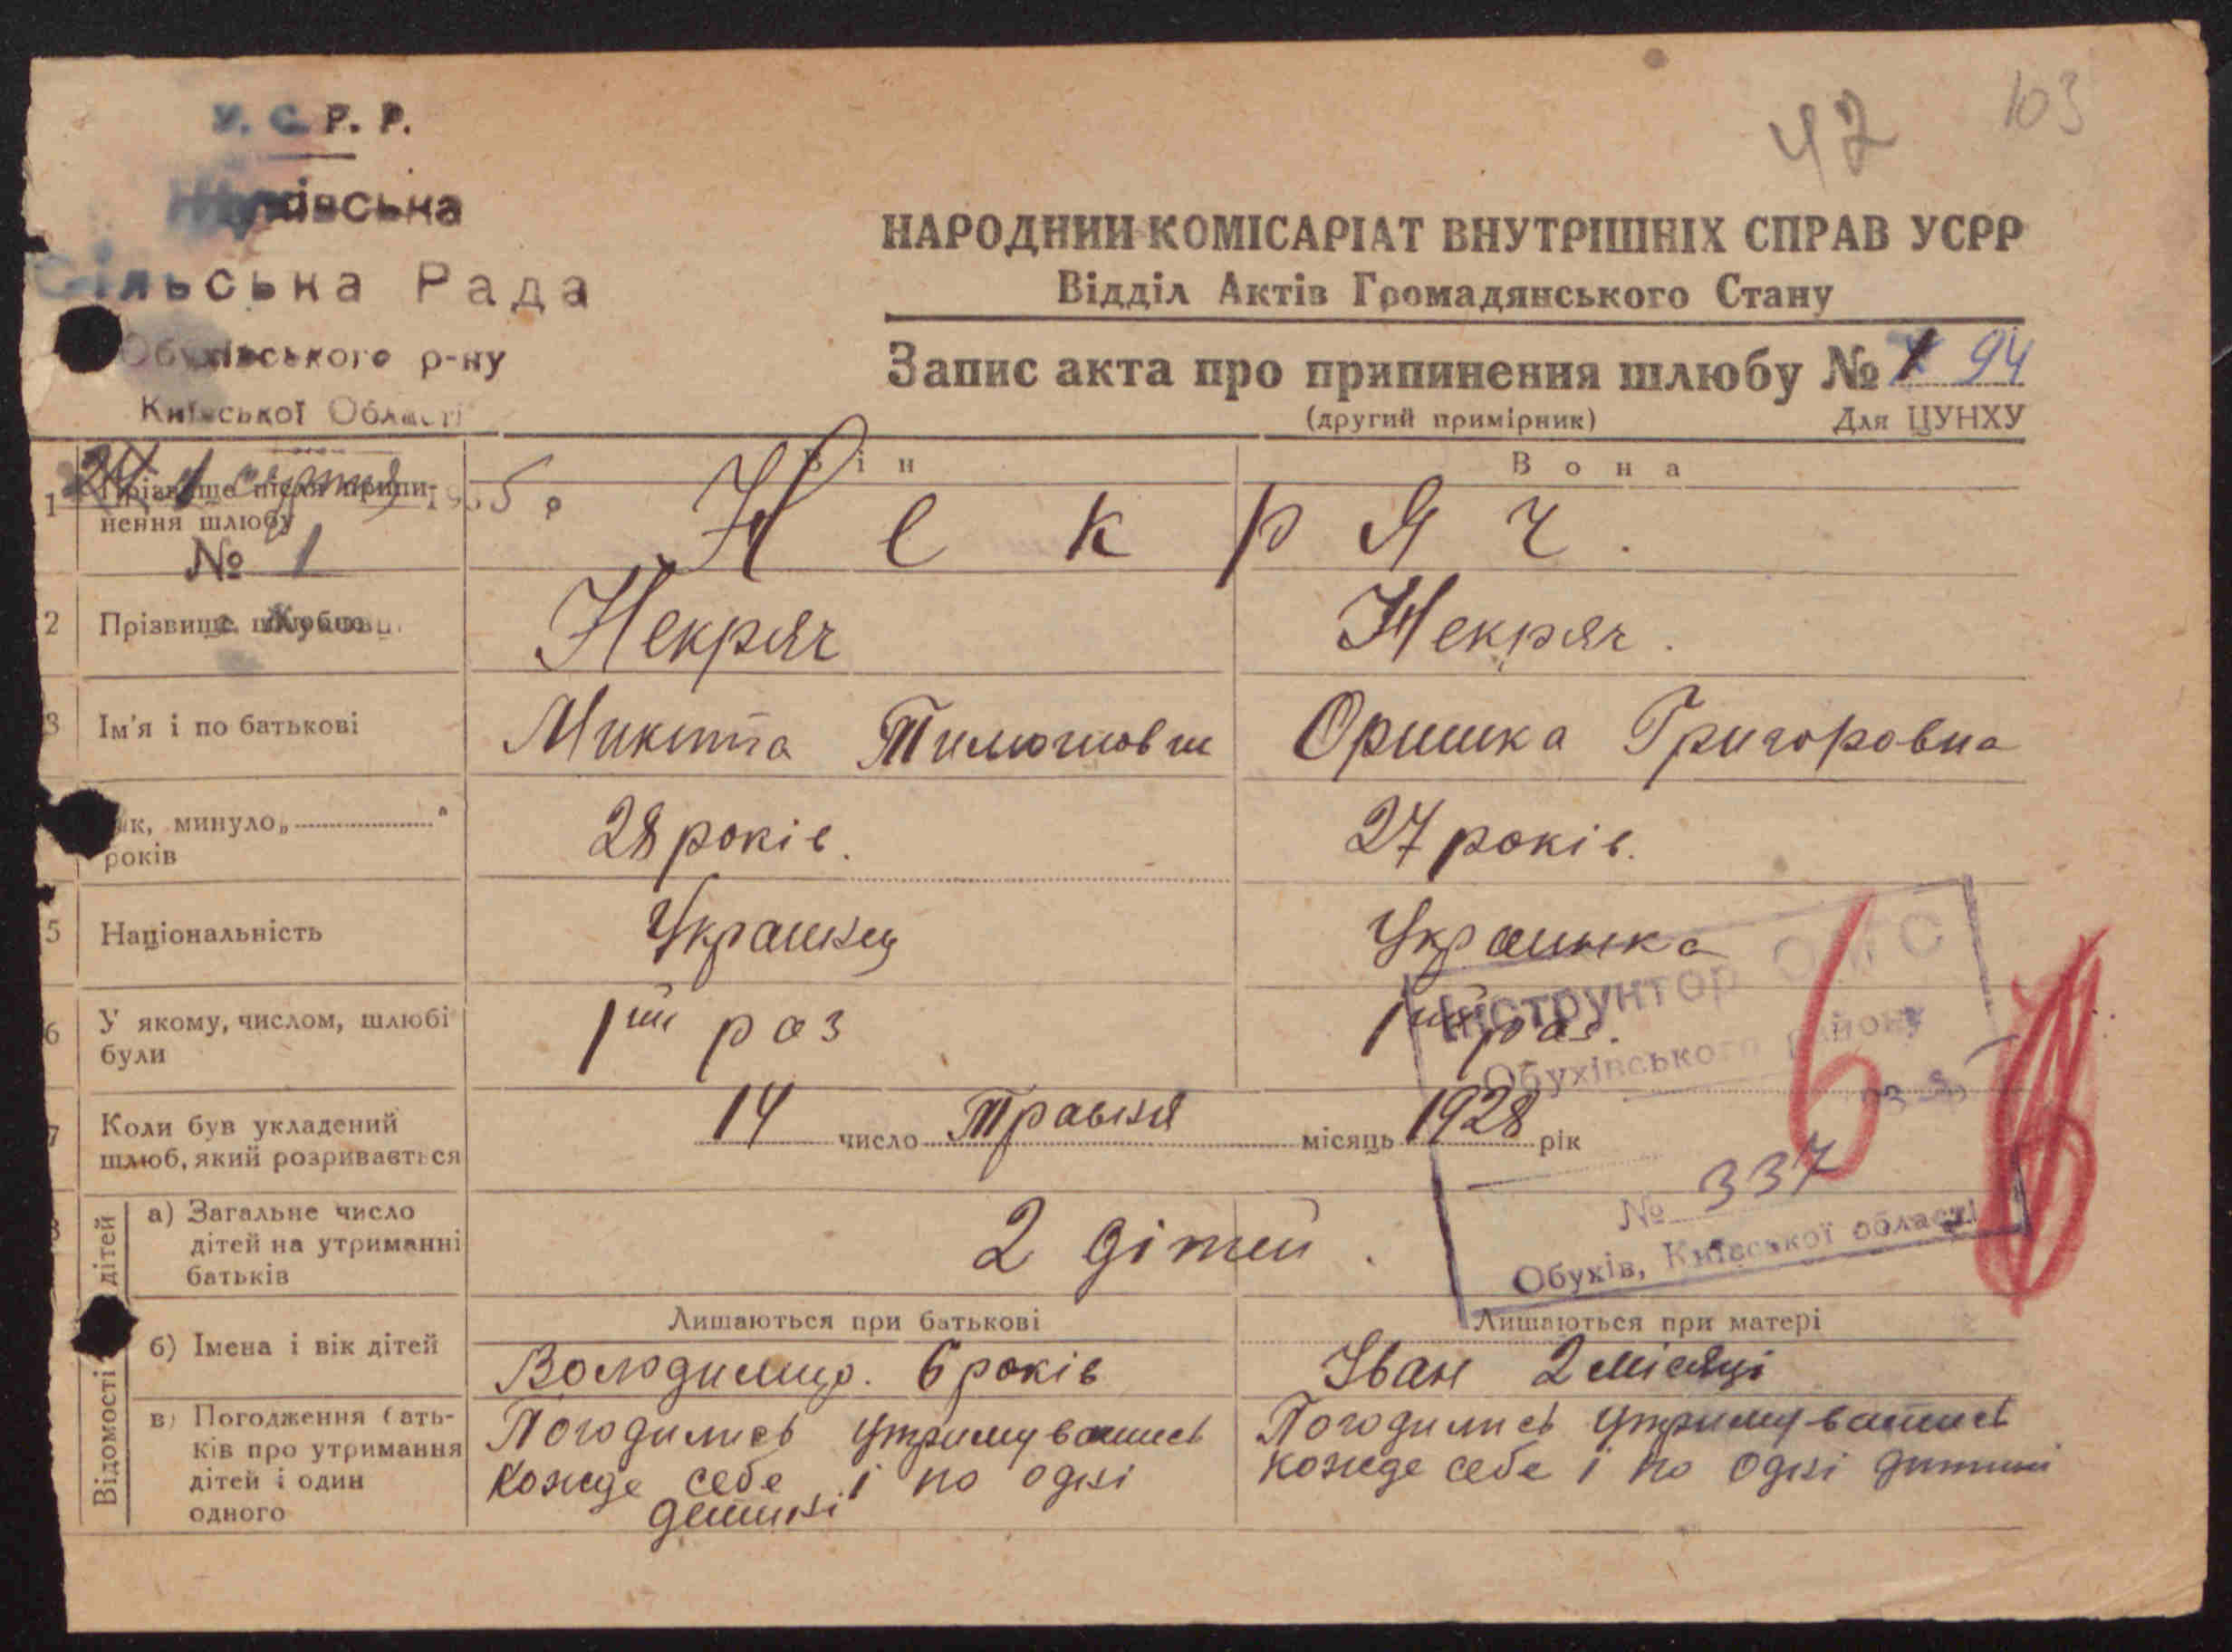 У. С. Р. Р.
Сільська Рада
Обухівського р-ну
Київської Області
42
103
НАРОДНИЙ КОМІСАРІАТ ВНУТРІШНІХ СПРАВ УСРР
Відділ Актів Громадянського Стану
Запис акта про припинення шлюбу № 1 94
(другий примірник) Для ЦУНХУ
Він Вона
1 Прізвище після припи-
нення шлюбу
серпня 1935 р
№ 1
Некряч.
2 Прізвище шлюбне Некряч Некряч.
3 Ім'я і по батькові Микита Тимошович Оришка Григоровна
Вік, минуло „ "
років
28 років. 27 років.
5 Національність Українец Украинка
6 У якому, числом, шлюбі
були
1ий раз 1ий раз.
7 Коли був укладений
шлюб, який розривається
14 число Травня місяць 1928 рік
Інструктор
Обухівського району
№ 337
Обухів, Київської області
6
8 Відомості дітей
а) Загальне число
дітей на утриманні
батьків
2 дітей.
б) Імена і вік дітей
Лишаються при батькові Лишаються при матері
Володимир. 6 років Іван 2 місяці
в) Погодження бать-
ків про утримання
дітей і один
одного
Погодились утримуватись
кожде себе і по одні
детині
Погодились утримуватись
кожде себе і по одні дитині